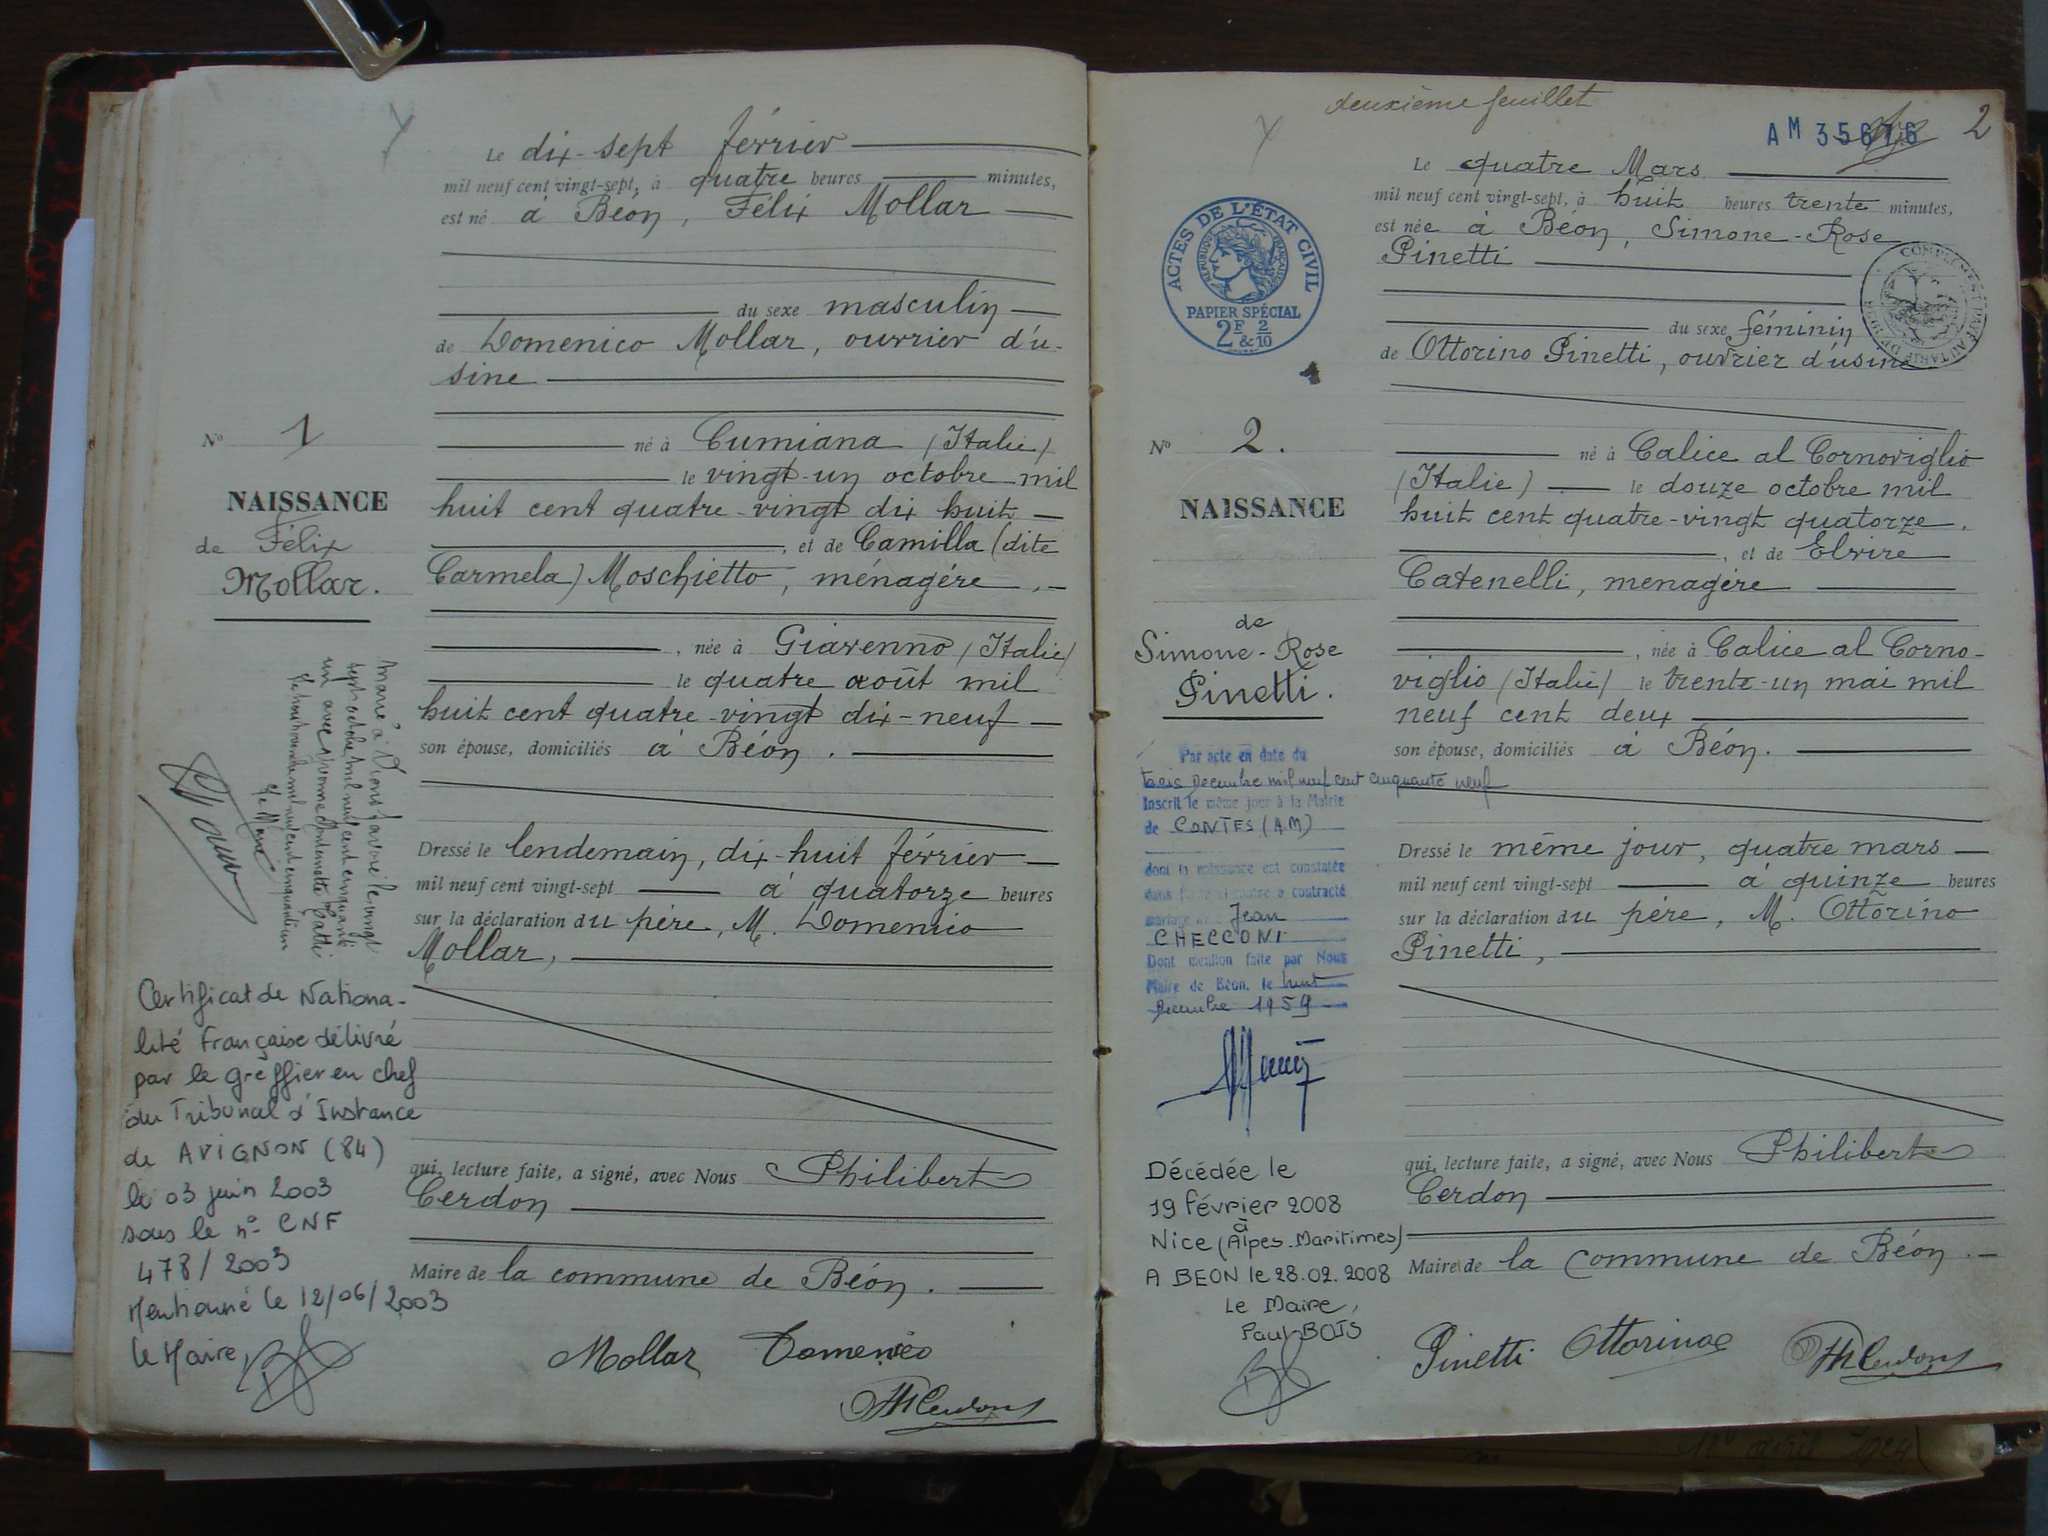 Le dix-sept février
mil neuf cent vingt-sept, à quatre heures minutes,
est né à Béon, Félix Mollar
du sexe masculin
de Domenico Mollar, ouvrier d'u-
sine
né à Cumiana (Italie)
le vingt-un octobre mil
huit cent quatre-vingt dix huit
, et de Camilla (dite
Carmela) Moschietto, ménagère,
, née à Giavenno (Italie)
le quatre août mil
huit cent quatre-vingt dix-neuf
son épouse, domiciliés à Béon.
Dressé le lendemain, dix-huit février
mil neuf cent vingt-sept à quatorze heures
sur la déclaration du père, M. Domenico
Mollar,
qui, lecture faite, a signé, avec Nous Philibert
Cerdon
Maire de la commune de Béon.
Mollar Domenico
N° 1
NAISSANCE
de Félix
Mollar.
Marié à le vingt
sept octobre mil neuf cent cinquante
un avec Yvonne Antoinette
mil neuf cent cinquante un
Le Maire
Certificat de Nationa-
lité Française délivré
par le greffier en chef
du Tribunal d'Instance
de AVIGNON (84)
le 03 juin 2003
sous le n° CNF
478/2003
Mentionné le 12/06/2003
Le Maire,
deuxième feuillet
AM 35676
2
ACTES DE L'ÉTAT CIVIL
RÉPUBLIQUE FRANÇAISE
PAPIER SPÉCIAL
2F & 2/10
Le quatre Mars
mil neuf cent vingt-sept, à huit heures trente minutes,
est née à Béon, Simone-Rose
Pinetti
du sexe féminin
de Ottorino Pinetti, ouvrier d'usine
né à Calice al Cornoviglio
(Italie) le douze octobre mil
huit cent quatre-vingt quatorze.
, et de Elvire
Catenelli, menagère
, née à Calice al Corno-
viglio (Italie) le trente-un mai mil
neuf cent deux
son épouse, domiciliés à Béon.
Dressé le même jour, quatre mars
mil neuf cent vingt-sept à quinze heures
sur la déclaration du père, M. Ottorino
Pinetti,
qui, lecture faite, a signé, avec Nous Philibert
Cerdon
Maire de la commune de Béon.
Pinetti Ottorino
N° 2.
NAISSANCE
de
Simone-Rose
Pinetti.
Par acte en date du
trois Décembre mil neuf cent cinquante neuf
Inscrit le même jour à la Mairie
de CONTES (A.M)
dont la naissance est constatée
a contracté
mariage avec Jean
CHECCONI
Dont mention faite par Nous
Maire de Béon, le huit
Décembre 1959
Décédée le
19 février 2008
à
Nice (Alpes-Maritimes)
A BEON le 28.02.2008
Le Maire,
Paul BOIS